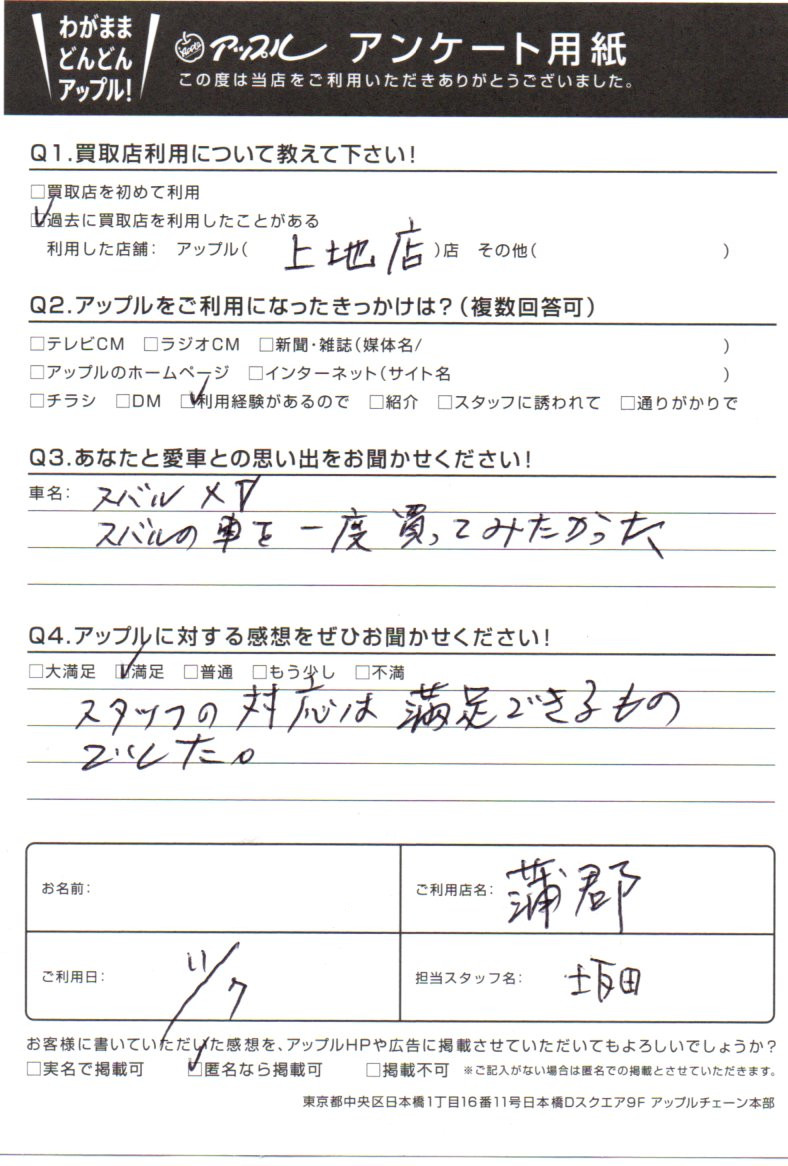 わがまま
どんどん
アップル!
APPLE アップル アンケート用紙
この度は当店をご利用いただきありがとうございました。
Q1.買取店利用について教えて下さい!
□買取店を初めて利用
☑過去に買取店を利用したことがある
利用した店舗: アップル( 上地店 )店 その他( )
Q2.アップルをご利用になったきっかけは?(複数回答可)
□テレビCM □ラジオCM □新聞・雑誌(媒体名/ )
□アップルのホームページ □インターネット(サイト名 )
□チラシ □DM ☑利用経験があるので □紹介 □スタッフに誘われて □通りがかりで
Q3.あなたと愛車との思い出をお聞かせください!
車名: スバル XV
スバルの車を一度買ってみたかった、
Q4.アップルに対する感想をぜひお聞かせください!
□大満足 ☑満足 □普通 □もう少し □不満
スタッフの対応は満足できるもの
でした。
お名前:
ご利用店名: 蒲郡
ご利用日: 11/7
担当スタッフ名: 坂田
お客様に書いていただいた感想を、アップルHPや広告に掲載させていただいてもよろしいでしょうか?
□実名で掲載可 ☑匿名なら掲載可 □掲載不可 ※ご記入がない場合は匿名での掲載とさせていただきます。
東京都中央区日本橋1丁目16番11号日本橋Dスクエア9F アップルチェーン本部